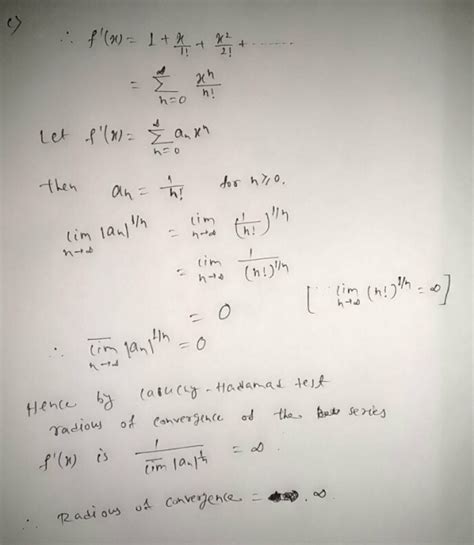 c)
∴ f'(x) = 1 + x/1! + x²/2! + ......
= ∞∑n=0 xⁿ/n!
Let f'(x) = ∞∑n=0 aₙxⁿ
then aₙ = 1/n! for n≥0.
lim n→∞ |aₙ|^1/n = lim n→∞ (1/n!)^1/n
= lim n→∞ 1/(n!)^1/n
= 0 [∵ lim n→∞ (n!)^1/n = ∞]
∴ l̅i̅m̅ n→∞ |aₙ|^1/n = 0
Hence by Hadamad test
radious of convergence of the series
f'(x) is 1/l̅i̅m̅ |aₙ|^1/n = ∞.
∴ Radious of convergence = ∞.